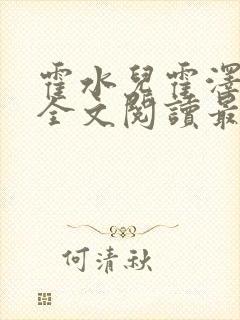 霍水兒霍澤
全文閱讀最
何清秋